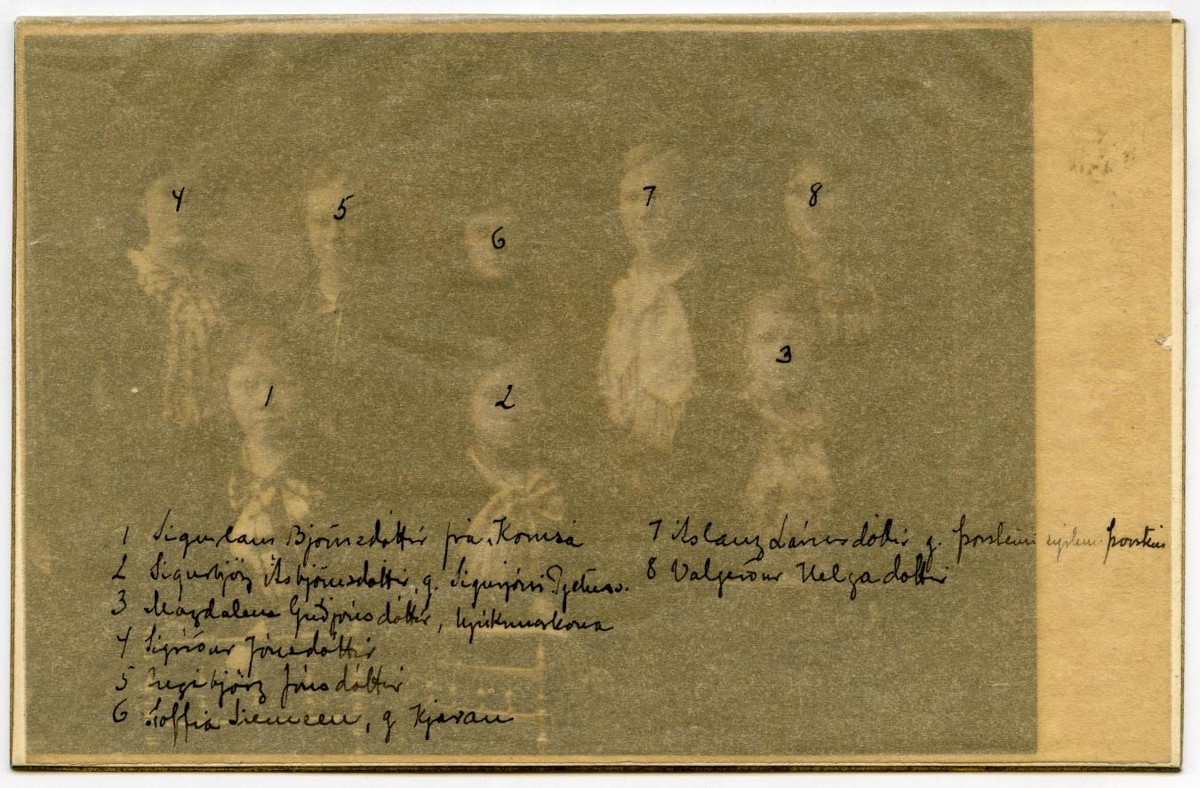 4 5 6 7 8
1 2 3
1 Sigurlaug Björnsdóttir frá Kornsá
2 Sigurbjörg Ásbjörnsdóttir, g. Sigurjóni Pjeturss.
3 Magdalena Guðjónsdóttir, hjúkrunarkona
4 Sigríður Jónsdóttir
5 Ingibjörg Jónsdóttir
6 Soffía Siemsen, g Kjaran
7 Áslaug Lárusdóttir g. Þorsteini syslum. Þorsteins
8 Valgerður Helgadóttir